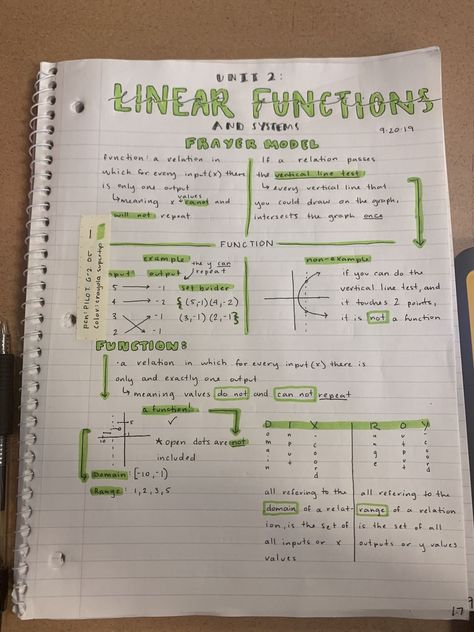 UNIT 2:
LINEAR FUNCTIONS
AND SYSTEMS
9·20·19
FRAYER MODEL
function: a relation in
which for every input (x) there
is only one output
↳ meaning x values cannot and
will not repeat
If a relation passes
the vertical line test
↳ every vertical line that
you could draw on the graph,
intersects the graph once
FUNCTION
pen: PILOT G-2 05
color: crayola supertips
example
the y can
repeat
input output
set builder
5 → -1
4 → -2
3 -1
2 -1
{(5,-1)(4,-2)
(3,-1)(2,-1)}
non-example
if you can do the
vertical line test, and
it touches 2 points,
it is not a function
FUNCTION:
· a relation in which for every input (x) there is
only and exactly one output
↳ meaning values do not and can not repeat
a function!
✓
* open dots are not
included
Domain: [-10, -1)
Range: 1, 2, 3, 5
D I X
Domain
input
x-coord
R O Y
Range
output
all refering to the
domain of a relat-
ion, is the set of
all inputs or x
values
all refering to the
range of a relation
is the set of all
outputs or y values